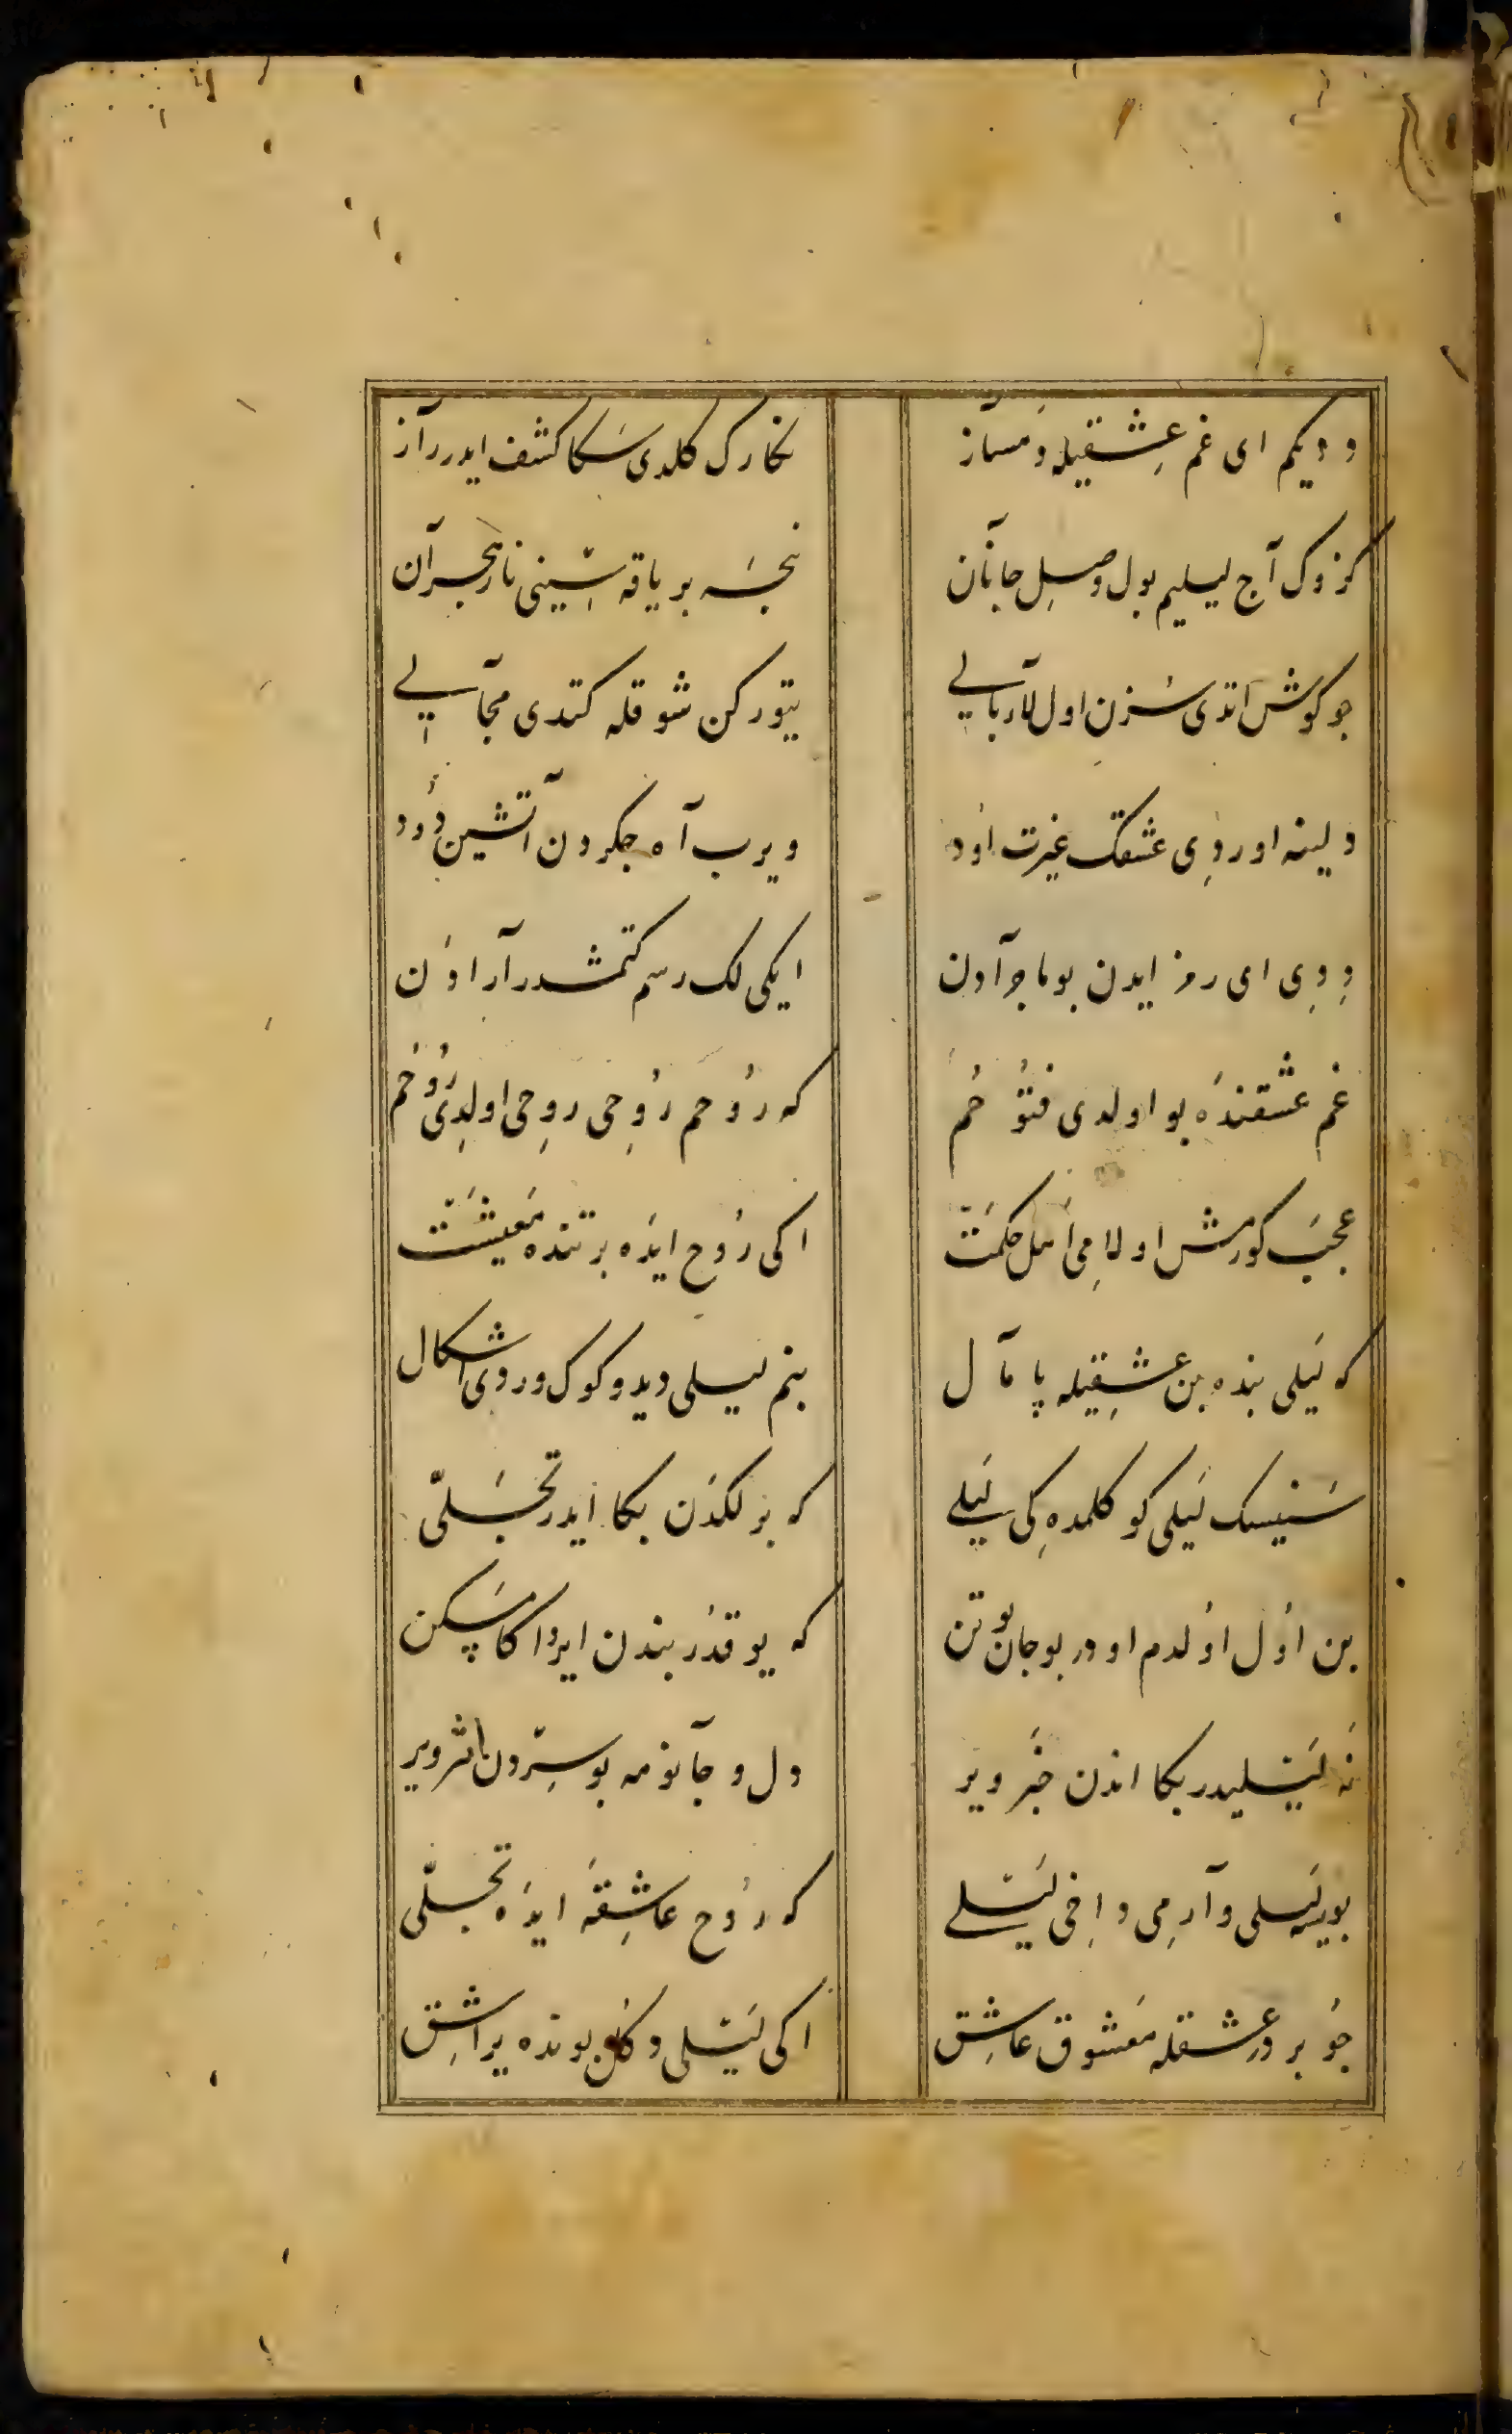 و دیكم ای غم عِشقیله دَمساز
نكارك كلدی سَكا كشف ایدر راز
كزوك آج لیلیم بول وصلِ جانان
نیجَه بر یاقه سِنی نار هجران
چو كوش اتدی سُزنِ اول لاابالی
یتوركن شوقله كتدی مجالی
دلینه اوردِی عشقك غیرت اود
ویرب آه جكردن آتشین دُود
دِدِی ای رمز ایدن بو ماجرادن
ایكی لك رسم كتمشدر آرادَن
غم عشقندَه بو اولدی فتوُحُم
كه رُوحم رُوحِی روحِی اولدِی رُوحُم
عجبَ كورمش اولامِی اَهل حكمَت
اكی رُوح ایدَه بر تنده مَعیشَت
كه لَیلی بنده بن عِشقِیله پامال
بنم لیلی دیدوكوك وردی اشكال
سَنیسك لَیلی كوكلمدهِ كی لَیلی
كه برلكدَن بكا ایدر تجَلّی
بن اُول اُولدم او در بو جان بو تن
كه یوقدُر بندن ایرو اكا مَسكن
نَه لَیلیدر بكا اندن خبَر ویر
دل و جانومه بو سِرّدن اثر ویر
بویله لَیلی وارمِی داخِی لَیلی
كه رُوح عاشِقَه ایدَه تجلّی
چوُ بر در عِشقله مَعشوق عاشِق
اكی لَیلی دكُل بونده یراشِق